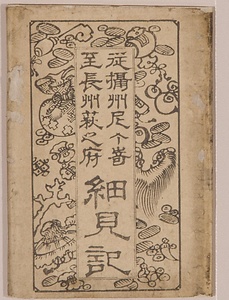 従攝州尼个崎
至長州萩之府
細見記